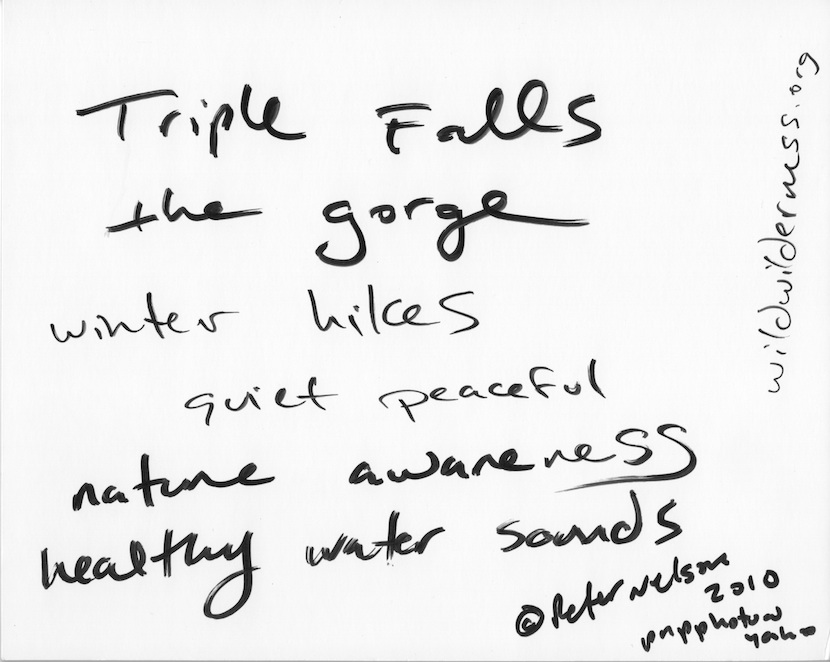 Triple Falls
the gorge
winter hikes
quiet peaceful
nature awareness
healthy water sounds
©Peter Nelson
2010
yahoo
wildwilderness.org